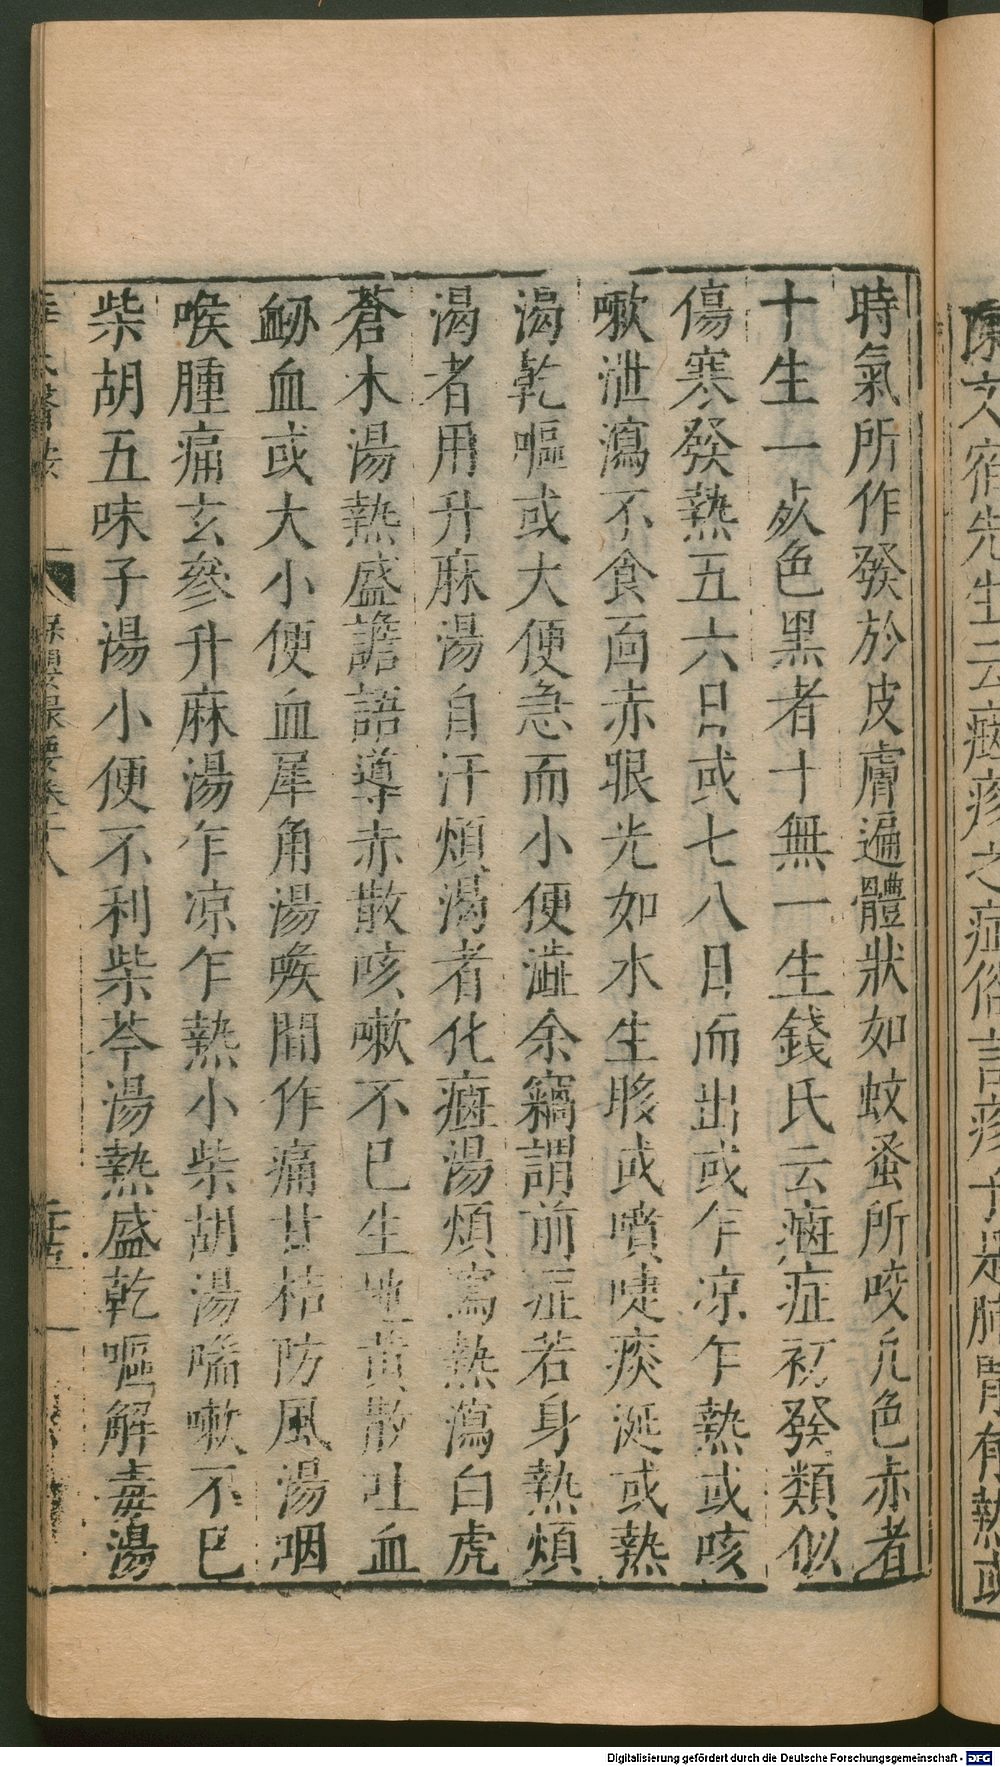 陳文宿先生云㾦疹之症俗言疹子是肺胃有熱或
時氣所作發於皮膚遍體狀如蚊蚤所咬凢色赤者
十生一死色黑者十無一生錢氏云㾦症初發類似
傷寒發熱五六日或七八日而出或乍凉乍熱或咳
嗽泄瀉不食面赤眼光如水生眵或噴嚏痰涎或熱
渴乾嘔或大便急而小便澁余竊謂前症若身熱煩
渴者用升麻湯自汗煩渴者化㾦湯煩寫熱瀉白虎
蒼木湯熱盛譫語導赤散咳嗽不已生地黃散吐血
衂血或大小便血犀角湯喉間作痛甘桔防風湯咽
喉腫痛玄參升麻湯乍凉乍熱小柴胡湯喘嗽不已
柴胡五味子湯小便不利柴苓湯熱盛乾嘔解毒湯
氏醫案
卷十八
Digitalisierung gefördert durch die Deutsche Forschungsgemeinschaft - DFG